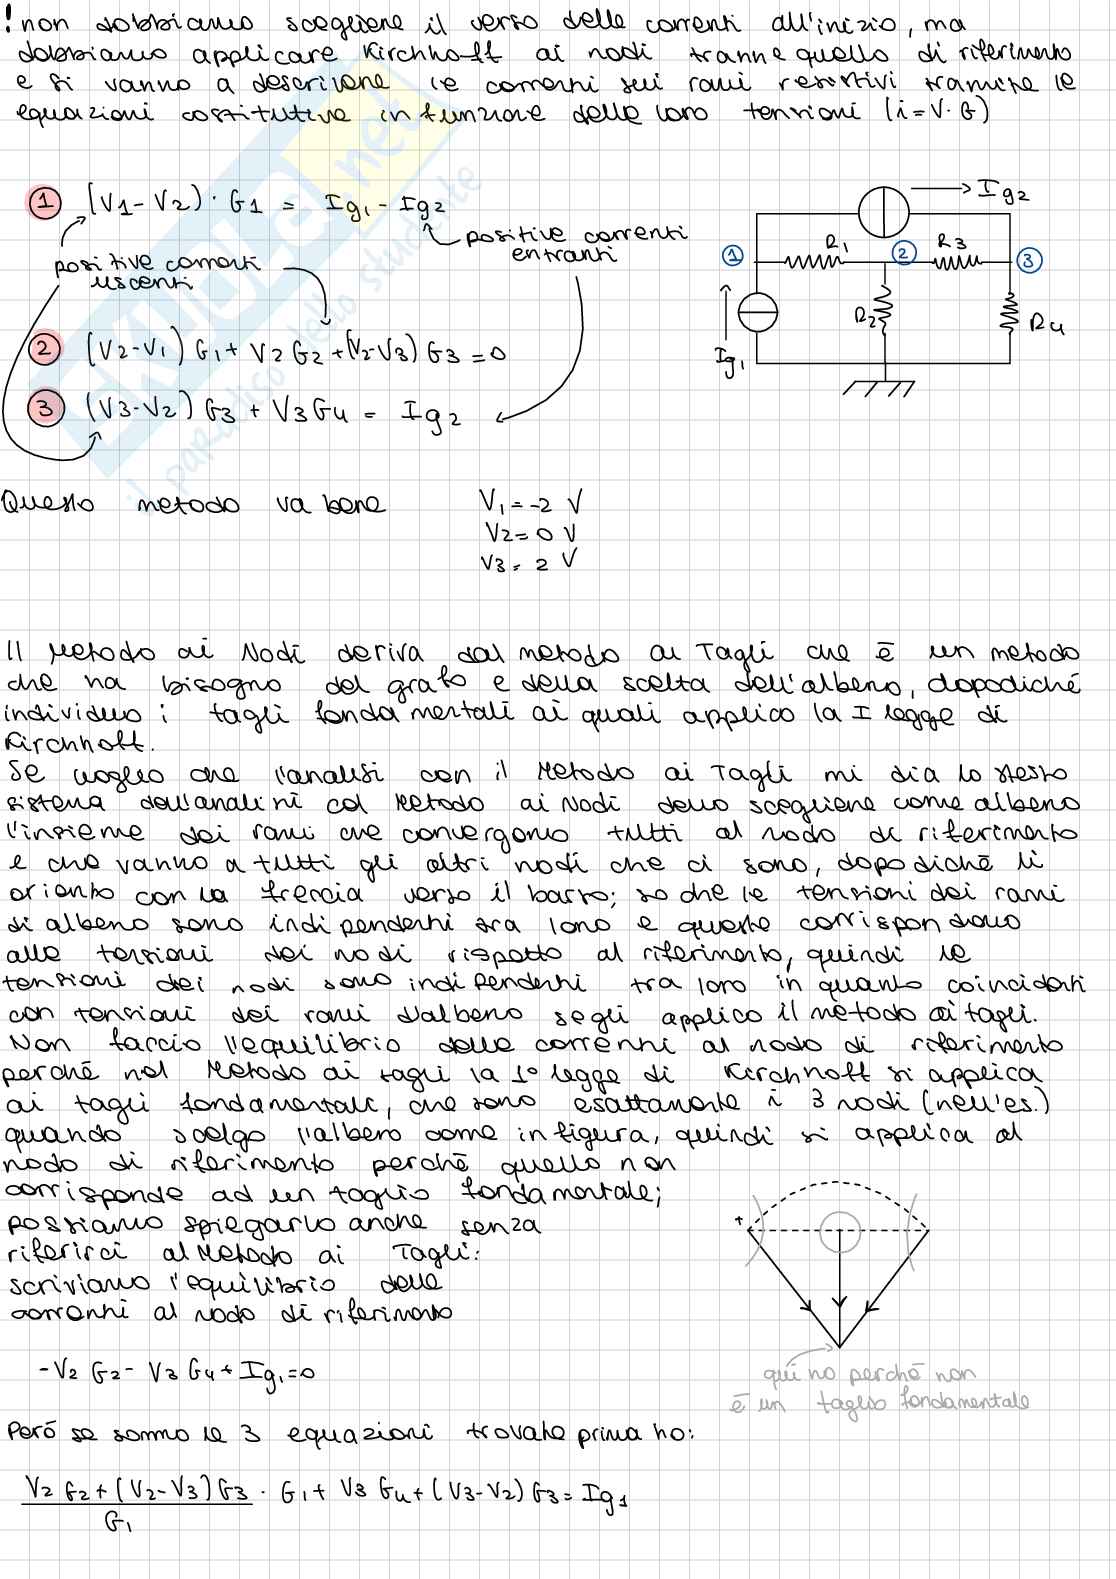 ! non dobbiamo scegliere il verso delle correnti all'inizio, ma
dobbiamo applicare Kirchhoff ai nodi tranne quello di riferimento
e si vanno a descrivere le correnti sui rami resistivi tramite le
equazioni costitutive in funzione delle loro tensioni (i=V·G)
1 (V1-V2)·G1 = Ig1 - Ig2
positive correnti
entranti
positive correnti
uscenti
2 (V2-V1) G1 + V2 G2 + (V2-V3) G3 = 0
3 (V3-V2) G3 + V3 G4 = Ig2
Ig2
1
R1
2
R3
3
R2
R4
Ig1
Questo metodo va bene
V1 = -2 V
V2 = 0 V
V3 = 2 V
Il Metodo ai Nodi deriva dal metodo ai Tagli che è un metodo
che ha bisogno del grafo e della scelta dell'albero, dopodiché
individuo i tagli fondamentali ai quali applico la I legge di
Kirchhoff.
Se voglio che l'analisi con il Metodo ai Tagli mi dia lo stesso
sistema dell'analisi col Metodo ai Nodi devo scegliere come albero
l'insieme dei rami che convergono tutti al nodo di riferimento
e che vanno a tutti gli altri nodi che ci sono, dopodiché li
oriento con la freccia verso il basso; so che le tensioni dei rami
di albero sono indipendenti tra loro e queste corrispondono
alle tensioni dei nodi rispetto al riferimento, quindi le
tensioni dei nodi sono indipendenti tra loro in quanto coincidenti
con tensioni dei rami d'albero se gli applico il metodo ai tagli.
Non faccio l'equilibrio delle correnti al nodo di riferimento
perché nel Metodo ai tagli la 1° legge di Kirchhoff si applica
ai tagli fondamentali, che sono esattamente i 3 nodi (nell'es.)
quando scelgo l'albero come in figura, quindi si applica al
nodo di riferimento perché quello non
corrisponde ad un taglio fondamentale;
possiamo spiegarlo anche senza
riferirci al Metodo ai Tagli:
scriviamo l'equilibrio delle
correnti al nodo di riferimento
+
qui no perché non
è un taglio fondamentale
-V2 G2 - V3 G4 + Ig1 = 0
Però se sommo le 3 equazioni trovate prima ho:
V2 G2 + (V2-V3) G3 · G1 + V3 G4 + (V3-V2) G3 = Ig1
G1
skuola.net
il paradiso dello studente